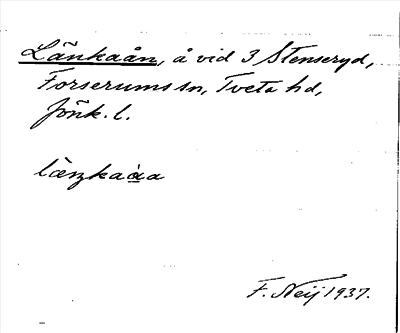 Länkaån, å vid 3 Stenseryd,
Forserums sn, Tveta hd,
Jönk. l.
F. Neij 1937.